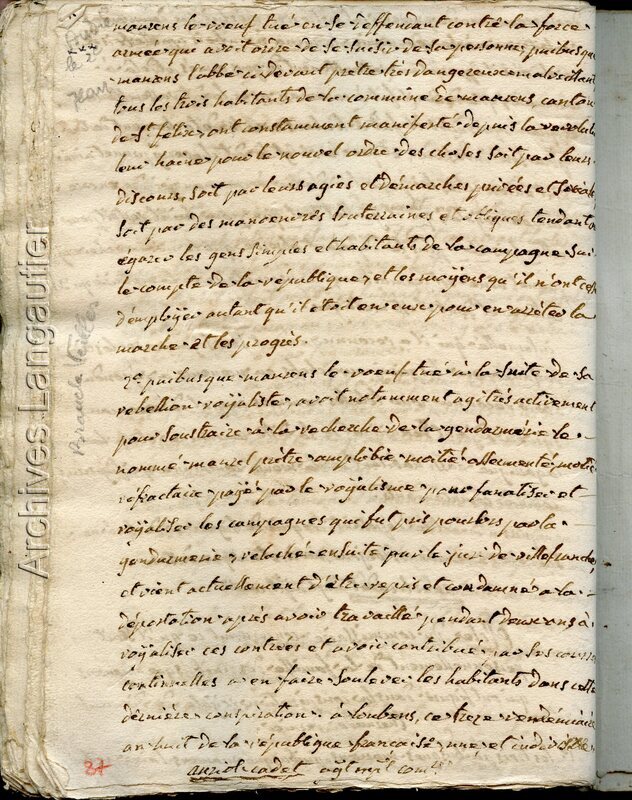 maurens le voeuf tué en se deffendant contre la force
armee que avoit ordre de se saisir de sa personne puibusque
maurens l'abbé ci devant prêtre très dangereux et malveillant
tous les trois habitants de la commune de maurens, canton
de St felix, ont constamment manifesté depuis la revolution
leur haine pour le nouvel ordre des choses soit par leurs
discours, soit par leurs agies et démarches privées et
soit par des manoeuvres souterraines et obliques tendant a
égarer les gens simples et habitants de la campagne sur
le compte de la république, et les moyens qu'il n'ont cessé
d'employer autant qu'il etoit en eux pour en arrêter la
marche et les progrès.
2° puibusque maurens le voeuf tué à la suite de sa
rebellion royaliste, avoit notamment agi très activement
pour soustraire à la recherche de la gendarmerie le
nommé maurel prêtre amphibie moitié assermenté, moitié
réfractaire payé par le royalisme pour fanatiser et
royaliser les campagnes qui fut pris pour lors par la
gendarmerie, relaché ensuite par le juri de villefranche,
et vient actuellement d'être repris et condamné a la
déportation après avoir travaillé pendant deux ans à
royaliser ces contrées et avoir contribué par ses courses
continuelles a en faire soulever les habitants dans cette
dernière conspiration. à loubens, ce treze vendémiaire
an huit de la république francoise une et indivisible
auriol cadet agt mpl comre
37
Jean
Branche
Archives Langautier